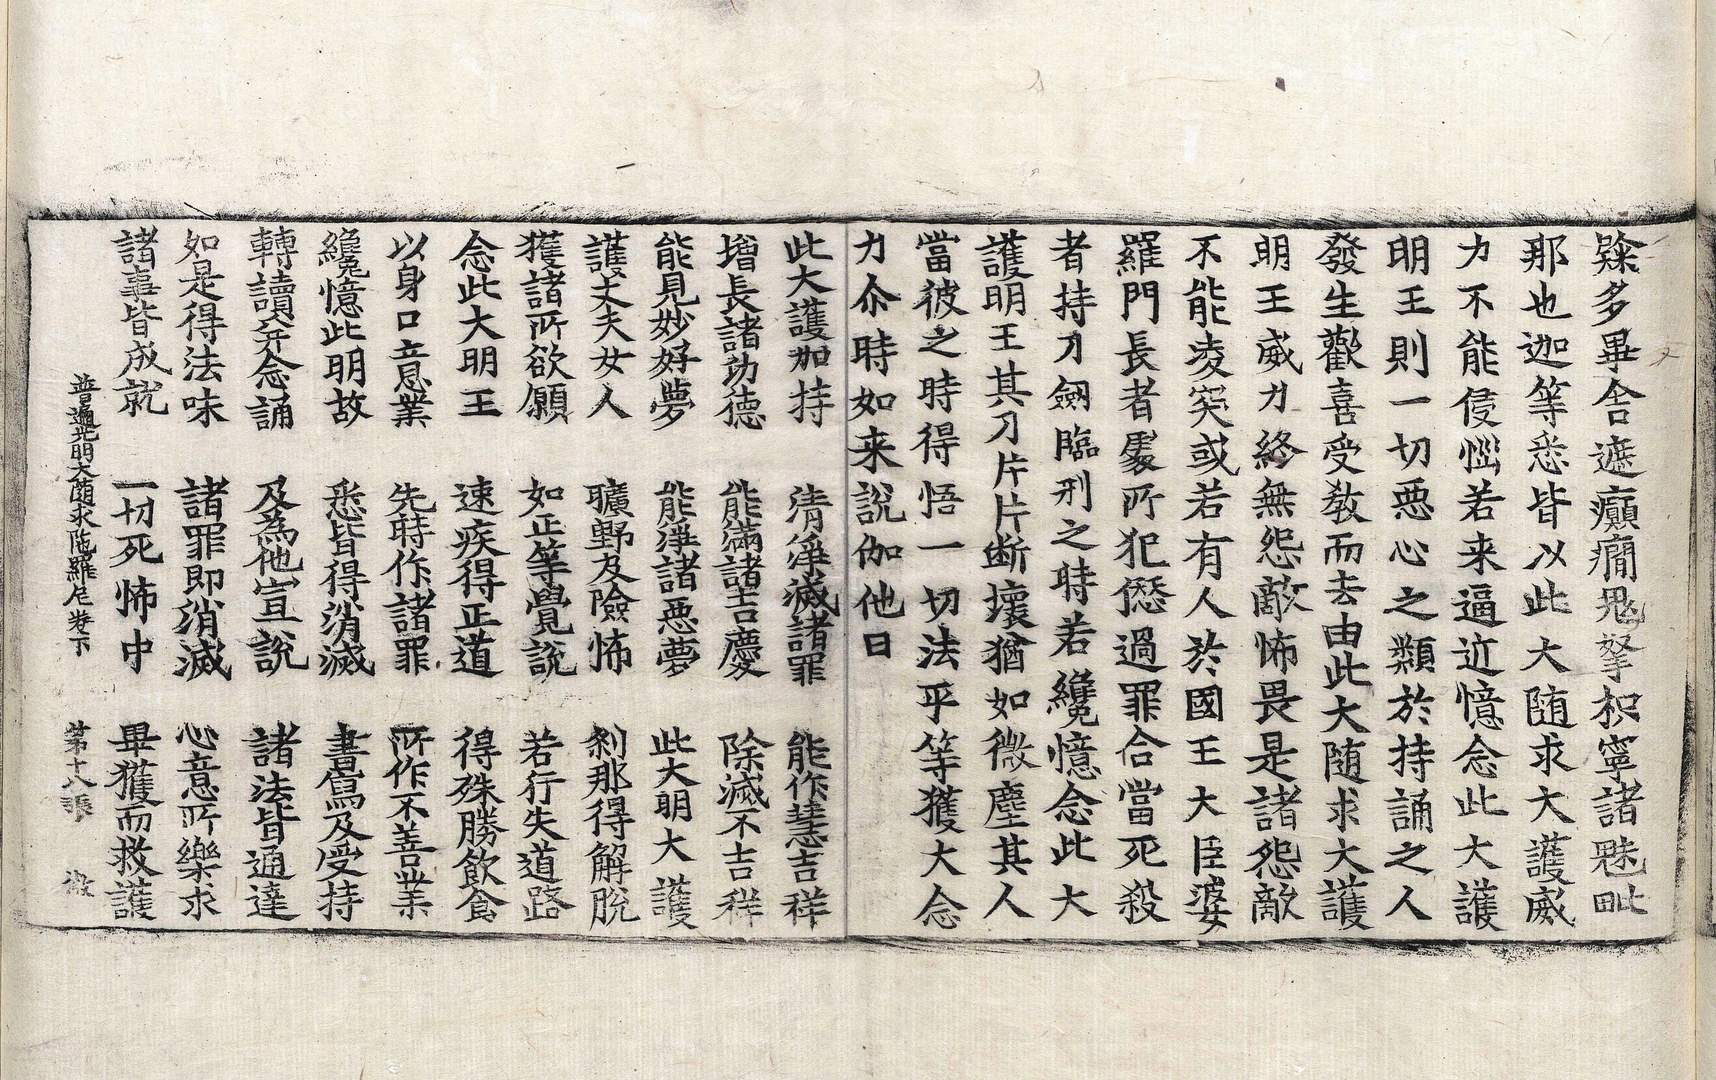 踩多畢舍遮癲癇鬼拏枳寧諸魅毗
那也迦等悉皆以此大随求大護威
力不能侵惱若来逼近憶念此大護
明王則一切惡心之類於持誦之人
發生歡喜受敎而去由此大随求大護
明王威力終無怨敵怖畏是諸怨敵
不能凌突或若有人於國王大臣婆
羅門長者處所犯愆過罪合當死殺
者持刀劒臨刑之時若纔憶念此大
護明王其刀片片断壞猶如微塵其人
當彼之時得悟一切法平等獲大念
力尒時如来說伽他曰
此大護加持 清淨滅諸罪 能作慧吉祥
增長諸功德 能滿諸吉慶 除滅不吉祥
能見妙好夢 能淨諸惡夢 此大明大護
護丈夫女人 曠野及險怖 剎那得解脫
獲諸所欲願 如正等覺說 若行失道路
念此大明王 速疾得正道 得殊勝飲食
以身口意業 先時作諸罪 所作不善業
纔憶此明故 悉皆得消滅 書寫及受持
轉讀并念誦 及為他宣說 諸法皆通達
如是得法味 諸罪即消滅 心意所樂求
諸事皆成就 一切死怖中 畢獲而救護
普遍光明大随求陁羅尼卷下 第十八張